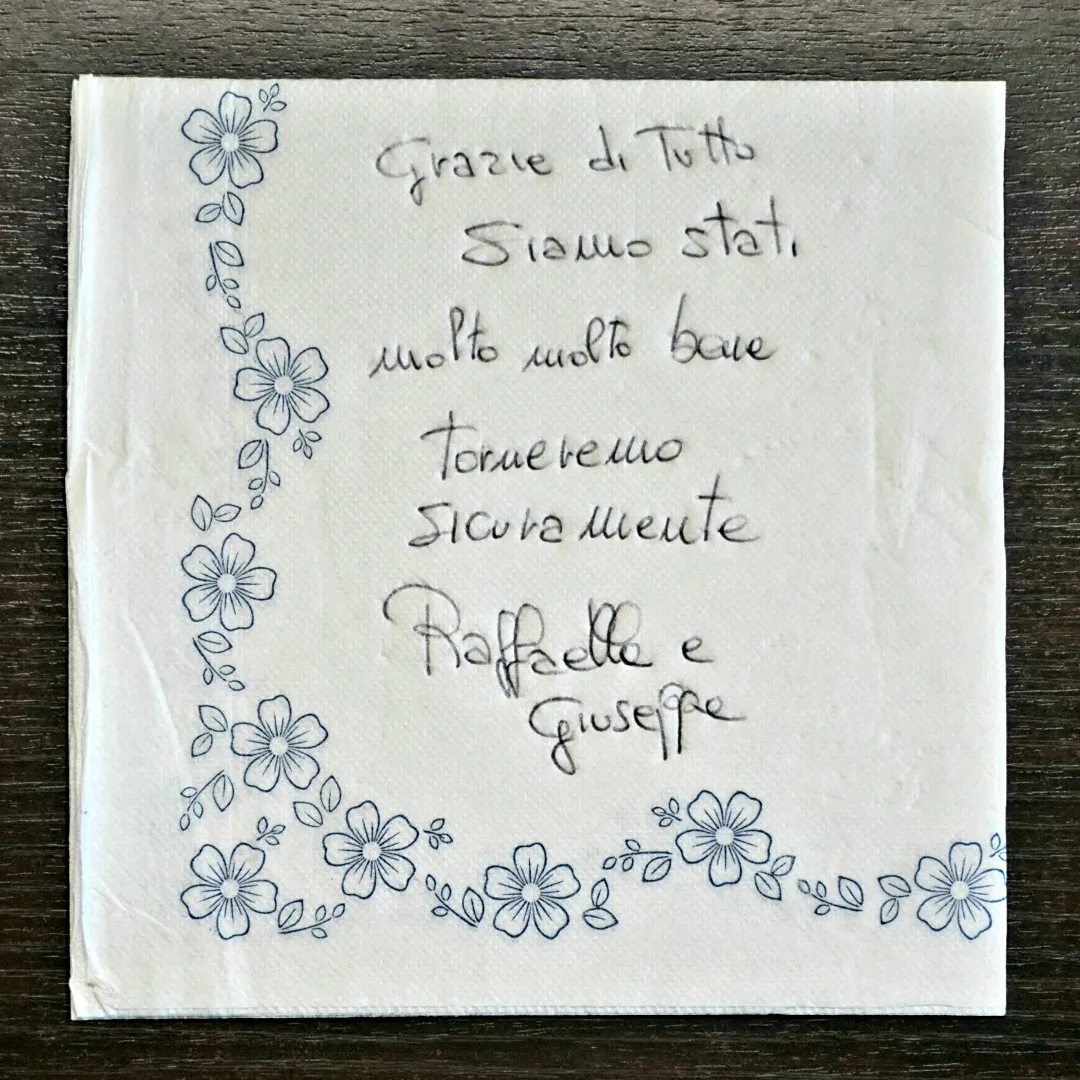 Grazie di Tutto
Siamo stati
molto molto bene
torneremo
sicuramente
Raffaella e
Giuseppe